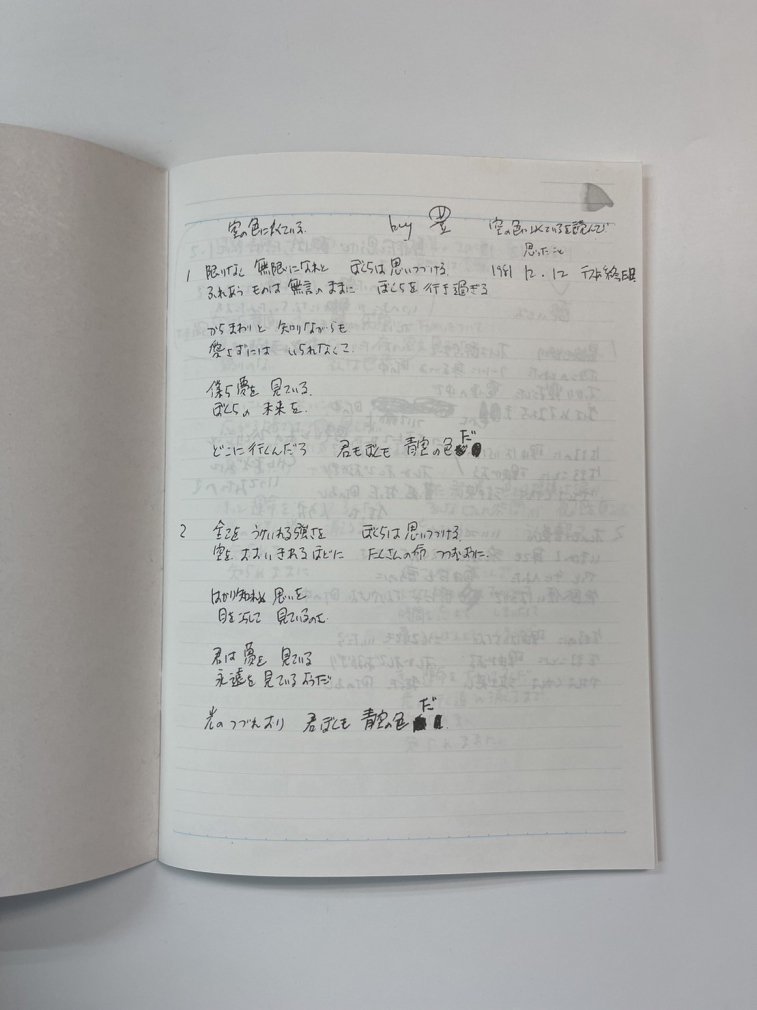 空の色に似ている。 buy 豊 空の色に似ているを読んで
思ったこと
1981 12.12
1 限りなく 無限になれと ぼくらは思いつづける
ふれあう ものは 無言のままに ぼくらを 行き過ぎる
からまわりと 知りながらも
愛さずには いられなくて
僕ら夢を 見ている
ぼくらの 未来を
どこに行くんだろ 君もぼくも 青空の色だ
2 全てを うけいれる強さを ぼくらは思いつづける
空を おおいきれるほどに たくさんの命 つつむために
はかり知れぬ 思いを
目をこらして 見ているのに
君は 夢を 見ている
永遠を見ているようだ
光のつづれおり 君もぼくも 青空の色だ